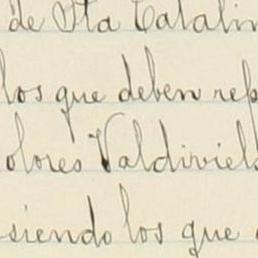 de Sta Catalin
los que deben rep
olores Valdiviels
siendo los que